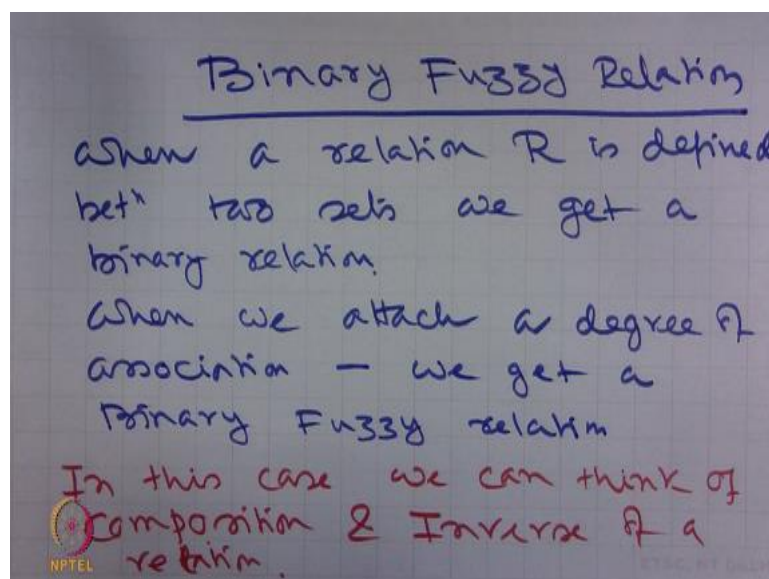 Binary Fuzzy Relation
When a relation R is defined
betn two sets we get a
binary relation.
When we attach a degree of
association – we get a
Binary Fuzzy relation
In this case we can think of
Composition & Inverse of a
relation.
NPTEL